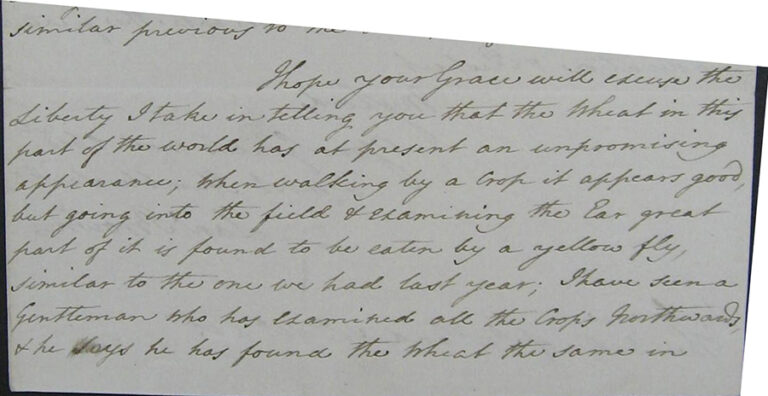 similar previous to the
I hope your Grace will excuse the
Liberty I take in telling you that the Wheat in this
part of the world has at present an unpromising
appearance; when walking by a Crop it appears good,
but going into the field & examining the Ear great
part of it is found to be eaten by a yellow fly,
similar to the one we had last year; I have seen a
Gentleman who has examined all the Crops Northwards,
& he says he has found the Wheat the same in